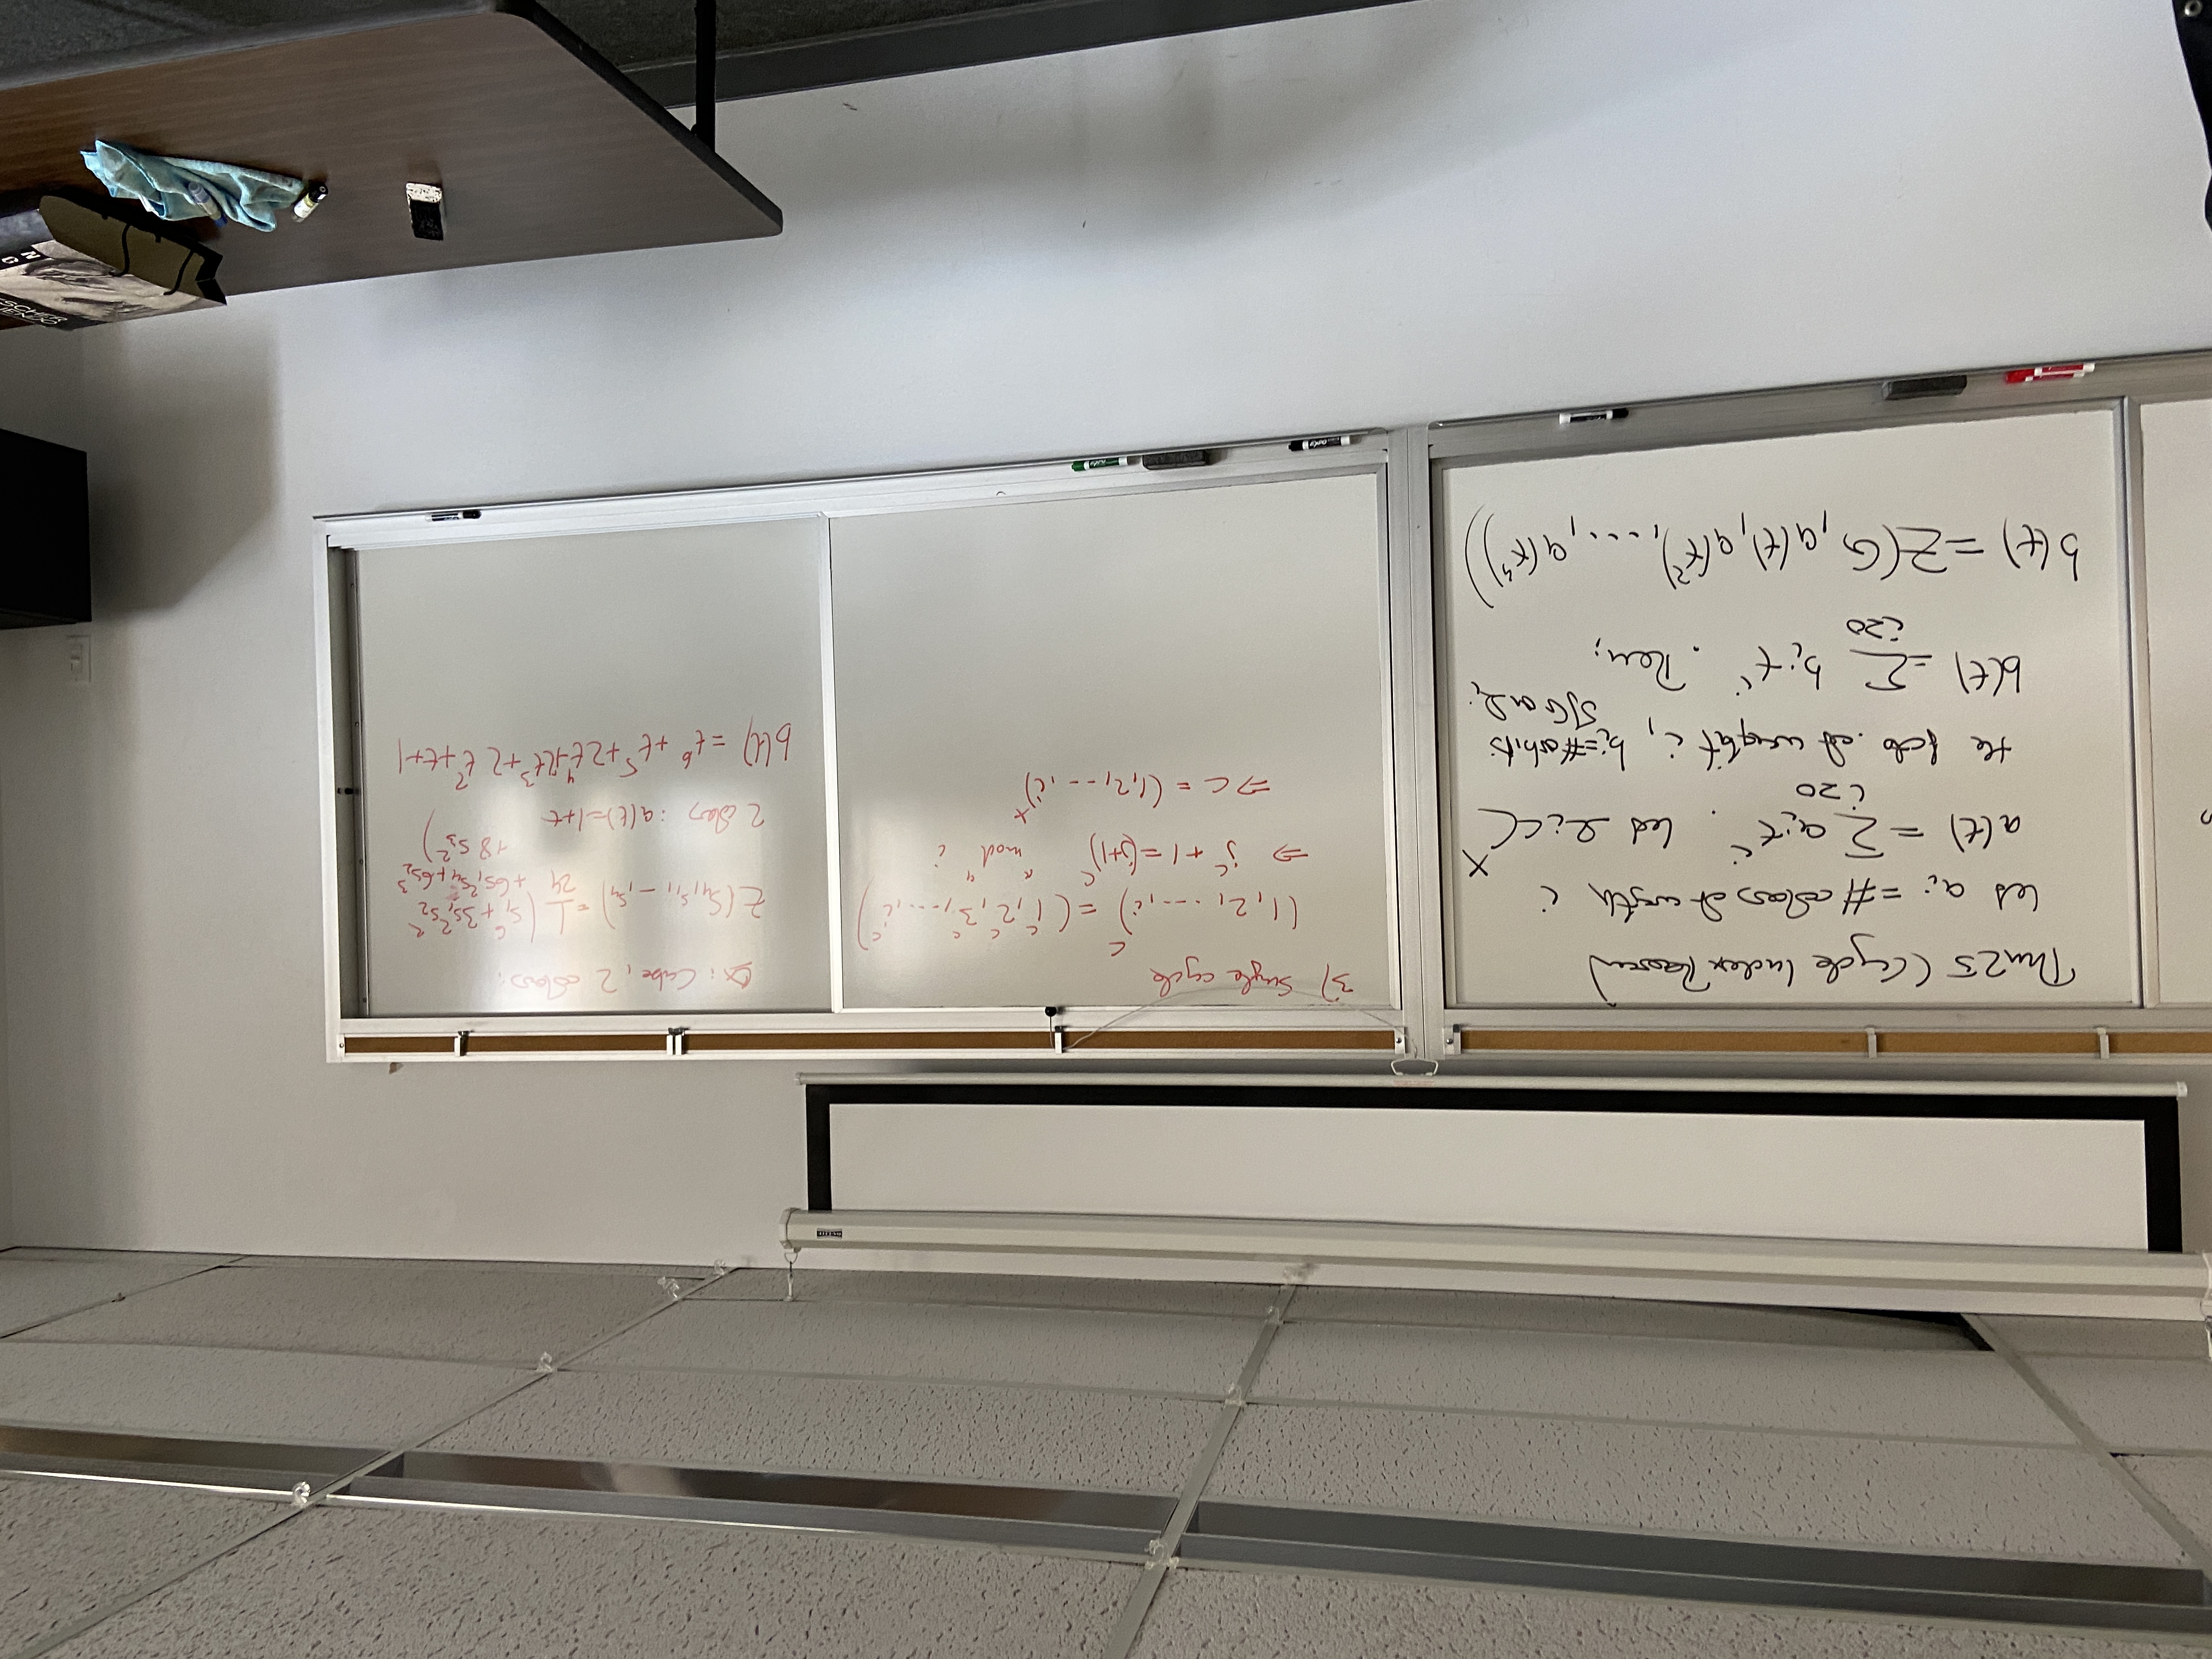 Thm 25 (Cycle Index Theorem)
Let a_i = # colors of weight i
a(t) = Σ_{i≥0} a_i t^i . Let Ω ⊆ C^X
the fcts of weight i, b_i = # orbits
b(t) = Σ_{i≥0} b_i t^i . Then:
b(t) = Z(G, a(t), a(t²), ..., a(t^n))
3) Single cycle
(1, 2, ..., i)^c = (1^c, 2^c, 3^c, ..., i^c)
⇒ j^c + 1 = (j+1)^c mod i
⇒ c = (1, 2, ..., i)^x
Ex: Cube, 2 colors:
Z(S_4, s_1, ..., s_4) = 1/24 (s_1^6 + 3s_1^2 s_2^2
+ 6s_1^2 s_4 + 6s_2^3
+ 8 s_3^2)
2 colors : a(t) = 1+t
b(t) = t^6 + t^5 + 2t^4 + 2t^3 + 2t^2 + t + 1